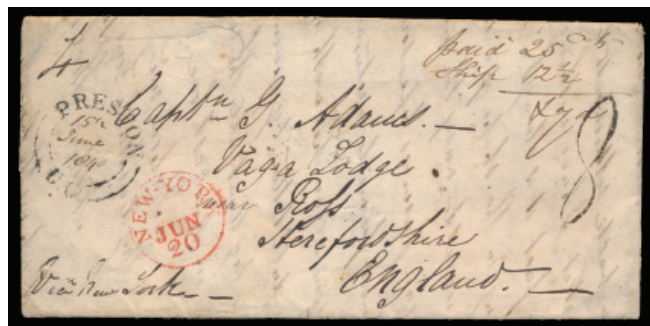 4
paid 25
Ship 12½
PRESTON
15th
June
1840
U.C.
8
Captn G. Adams.
Vaga Lodge.
near
Ross
Herefordshire
England.
NEW-YORK
JUN
20
Via New York